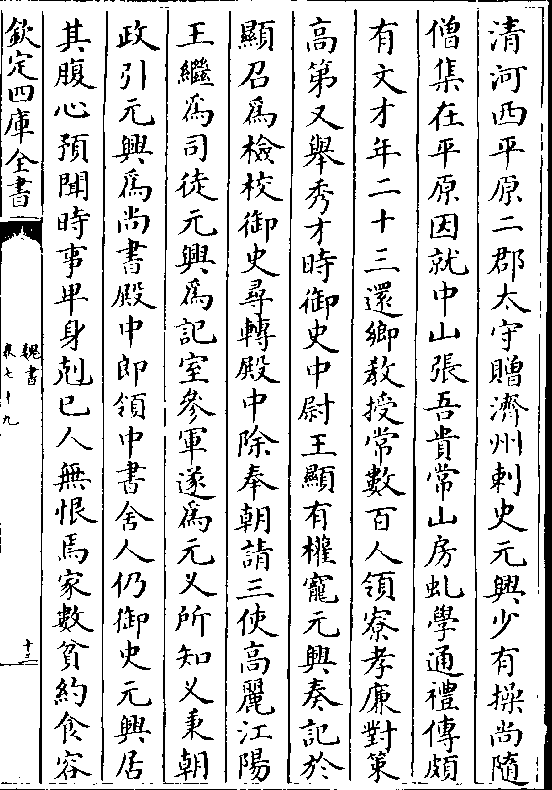 清河西平原二郡太守贈濟州刺史元興少有操尚隨
僧集在平原因就中山張吾貴常山房虬學通禮傳頗
有文才年二十三還鄉教授常數百人領寮孝廉對策
高第又舉秀才時御史中尉王顯有權寵元興奏記於
顯召為檢校御史尋轉殿中除奉朝請三使高麗江陽
王繼為司徒元興為記室參軍遂為元乂所知乂秉朝
政引元興為尚書殿中郎領中書舍人仍御史元興居
其腹心預聞時事卑身剋己人無恨焉家數貧約食容
欽定四庫全書
魏書
卷七十九
十三